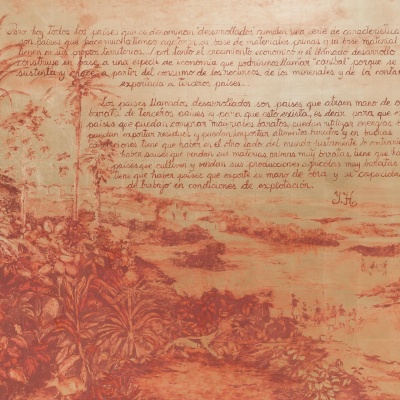 Pero hoy todos los países que se denominan desarrollados cumplen una serie de características
son países que hace mucho tiempo agotaron su base de materias primas, su base material
tienen en sus propios territorios. Por lo tanto el crecimiento económico en el llamado desarrollo
construye en base a una especie de economía que podríamos llamar "caníbal" porque se
sustenta y crece a partir del consumo de los recursos, de los minerales y de la
exportación a terceros países.
Los países llamados desarrollados son países que atraen mano de o
barata de terceros países y para que esto exista, es decir, para que e
países que puedan comprar materiales baratos, puedan utilizar energías
puedan exportar residuos y puedan importar alimentos baratos y en buenas
condiciones tiene que haber en el otro lado del mundo justamente lo contrario
haber países que vendan sus materias primas muy baratas, tiene que ha
países que cultiven y vendan sus producciones agrícolas muy baratas
tiene que haber países que exporte su mano de obra y su capacidad
de trabajo en condiciones de explotación.
Y.H.